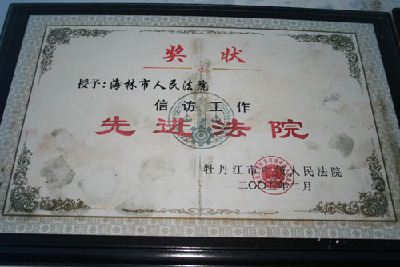 奖状
授予:海林市人民法院
信访工作
先进法院
牡丹江市 人民法院
二〇〇 年一月